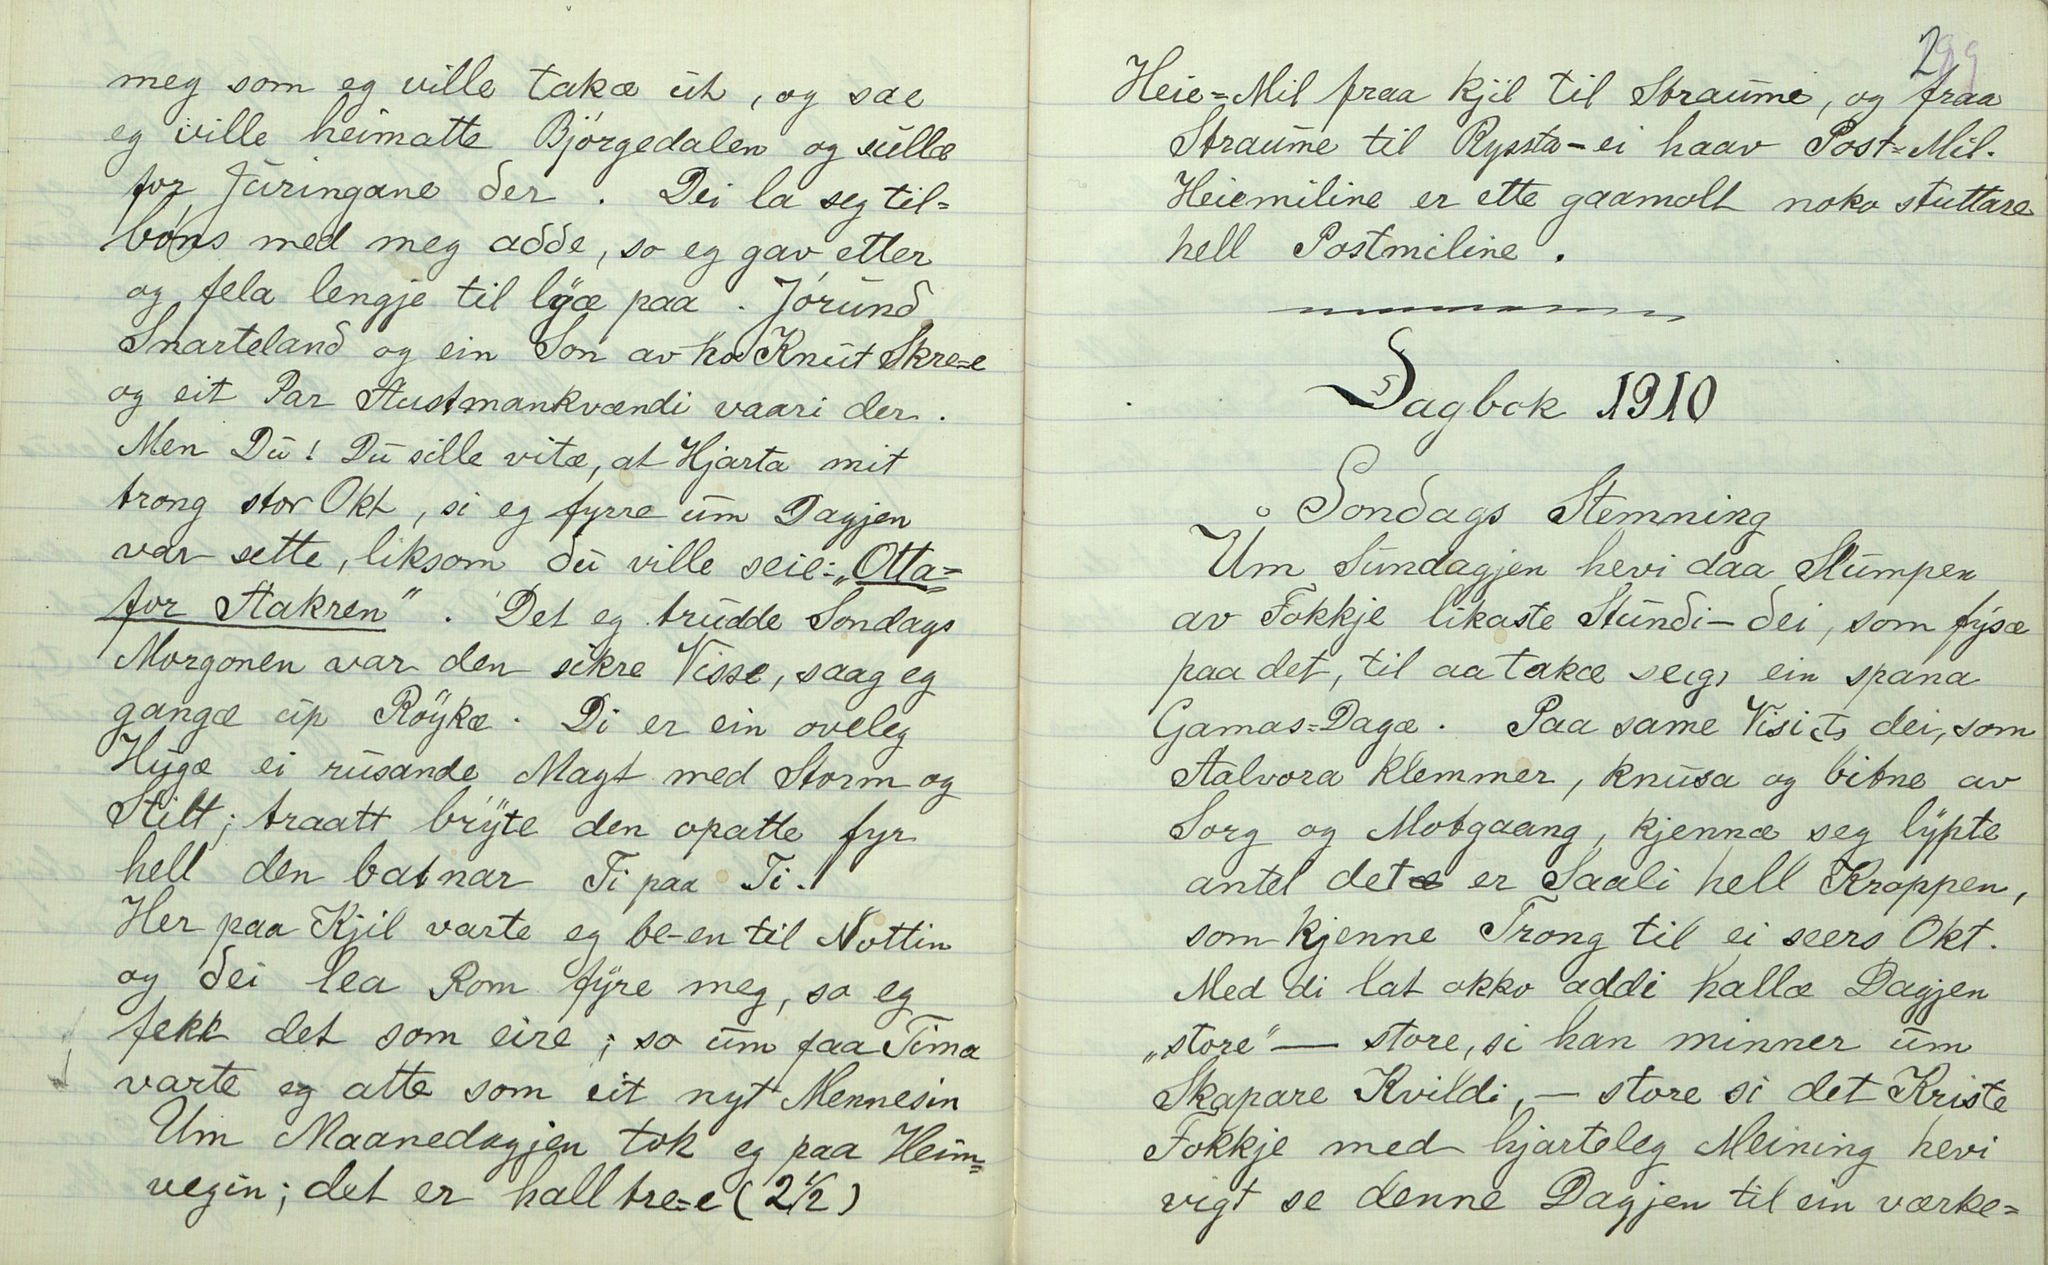 meg som eg ville takæ út, og sae
eg ville heimatte Bjørgedalen og súllæ
for Júringane der. Dei la seg til=
bóns med meg adde, so eg gav etter
og fela lengje til lÿæ paa. Jórúnd
Snarteland og ein Son av ho Knút Skre=e
og eit Par Austmankvændi vaari der.
Men Dú! Dú sille vitæ, at Hjarta mit
trong stor Okt, si eg fyrre úm Dagjen
var sette, liksom dú ville seie: „Otta=
for Aakren". Det eg trúdde Sondags
Morgonen var den sikre Visse, saag eg
gangæ úp Röykæ. Di er ein oveleg
Húgæ ei rúsande Magt med Storm og
Stilt; traatt brÿte den opatte fyr
hell den batnar Ti paa Ti.
Her paa Kjil varte eg be-en til Nottin
og dei lea Rom fÿre meg, so eg
fekk det som eire; so úm faa Tima
varte eg atte som eit nyt Mennesin
Um Maanedagjen tok eg paa Heim=
vegin; det er hall tre=e (2½)
299
Heie=Mil fraa Kjil til Straúmi, og fraa
Straúme til Ryssta-ei haav Post=Mil.
Heiemiline er ette gaamolt noko stuttare
hell Postmiline.
Dagbok 1910
Sondags Stemning
Úm Súndagjen hevi daa Slúmpen
av Fokkje likaste Stúndi-dei, som fýsæ
paa det, til aa takæ seg ein spana
Gamas=Dagæ. Paa same Visi dei, som
Aalvora klemmer, knúsa og bitne av
Sorg og Motgaang, kjennæ seg lÿpte
antel det er Saali hell Kroppen,
som kjenne Trong til ei seers Okt.
Med di lat okko addi hallæ Dagjen
„store" — store, si han minner úm
Skapare Kvildi, — store si det Kriste
Fokkje med hjarteleg Meining hevi
vigt se denne Dagjen til ein værke=